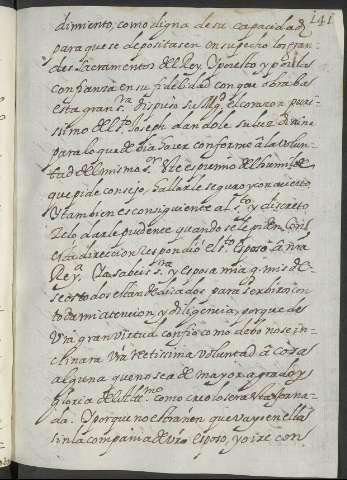 141
dimiento, como digna de su capacidad
para que se depositasen en su pecho los gran-
des sacramentos del Rey. Y por esto y por la
confianza en su fidelidad con que obraba
esta gran S.ra dispuso su Mag.d el corazon puri-
simo del S.to Joseph dandole su luz divina
para lo que debia hacer conforme â la volun-
tad del mismo S.r Que es premio del humilde
que pide consejo, hallarle seguro y con acierto
Y tambien es consiguiente al S.to y discreto
zelo darle prudente quando se le piden. Con
esta direccion respondió el S.to Esposo â nra
Reyna. Ya sabeis S.ra y esposa mia q. mis de-
seos todos estàn dedicados, para serbiros con
toda mi atencion, y diligencia, porque de
vra gran virtud confio como debo no se in-
clinara vra rectissima voluntad â cosa
alguna que no sea de mayor agrado, y
gloria del Alt.mo como creo lo será esta jorna-
da. Y porque no estrañen que vays en ella
sin la compañia de vro esposo, yo ire con